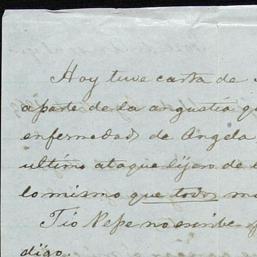 Hoy tuve carta de
aparte de la angustia q
enfermedad de Angela
ultimo ataque lijero de
lo mismo que todos
Tio Pepe no escribe
digo.